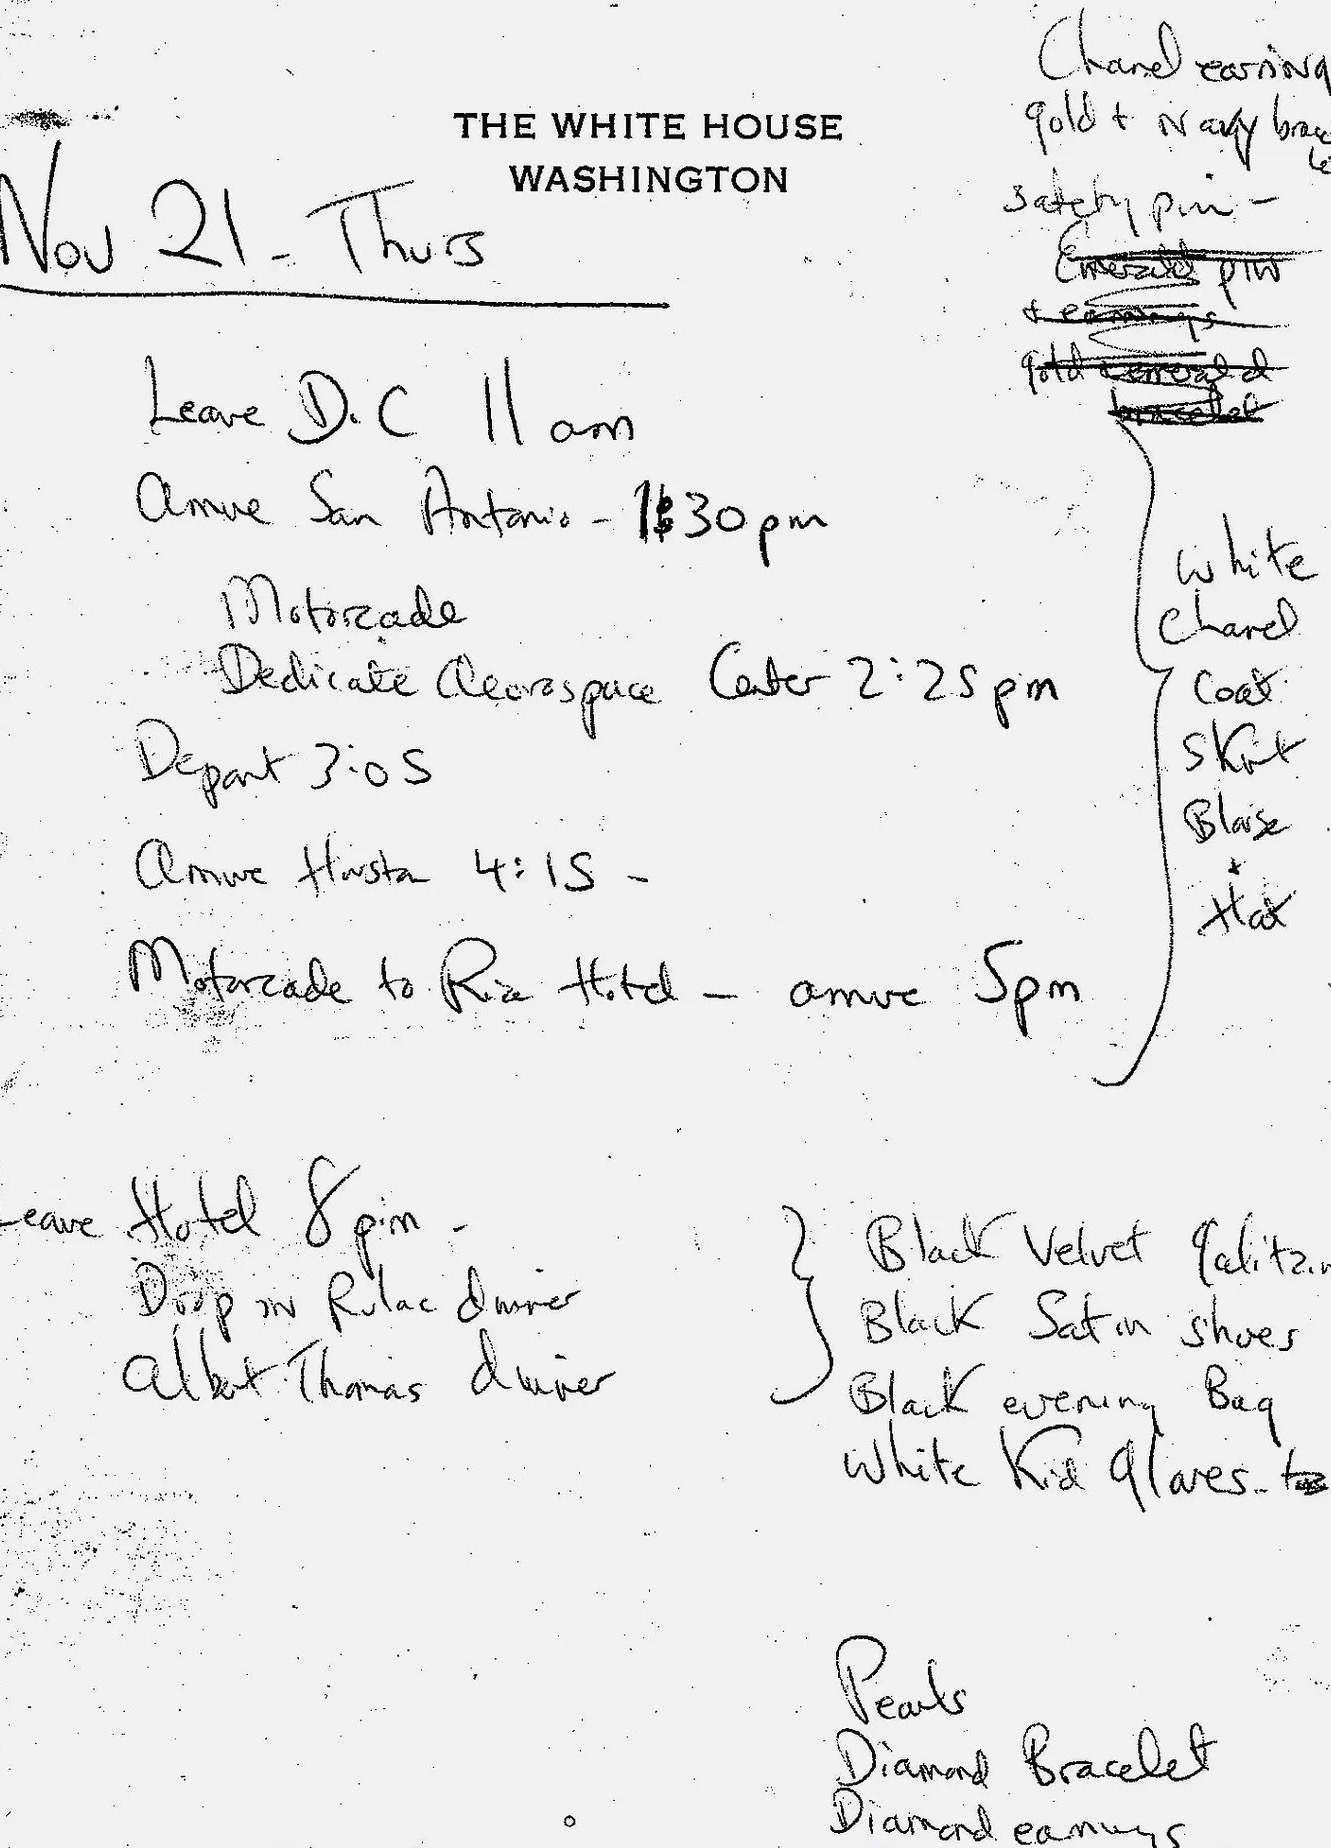 THE WHITE HOUSE
WASHINGTON
Chanel earring
gold + Navy brace
le
safety pin -
Emerald pin
+ earrings
gold emerald
bracelet
Nov 21 - Thurs
Leave D.C 11 am
Arrive San Antonio - 1:30 pm
Motorcade
Dedicate Aeorospace Center 2:25 pm
Depart 3:05
Arrive Houston 4:15 -
Motorcade to Rice Hotel - arrive 5pm
White
Chanel
Coat
Skirt
Blouse
+
Hat
Leave Hotel 8 pm -
Drop in Rulac dinner
Albert Thomas dinner
Black Velvet galitzin
Black Satin shoes
Black evening Bag
White Kid gloves -
Pearls
Diamond Bracelet
Diamond earrings